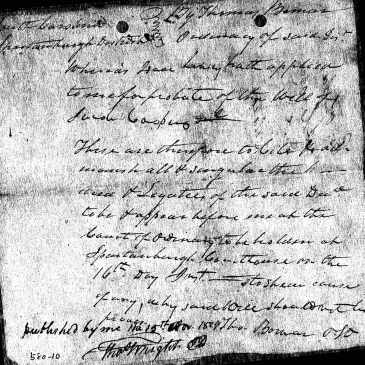 South Carolina } By Thomas Bomar
Spartanburgh District } Ordinary of said Dist
Whereas Isaac hath applied
to me for probate of the Will of

These are therefore to Cite & ad
monish all & singular the
& Legatees of the said Decd
to be & appear before me at the
Court of Ordinary to be holden at
Spartanburgh Courthouse on the
16th Day Inst to shew cause
if any, why said Will should not be
proved Thos Bomar
published by me the 12th Nov
Wright
580-10